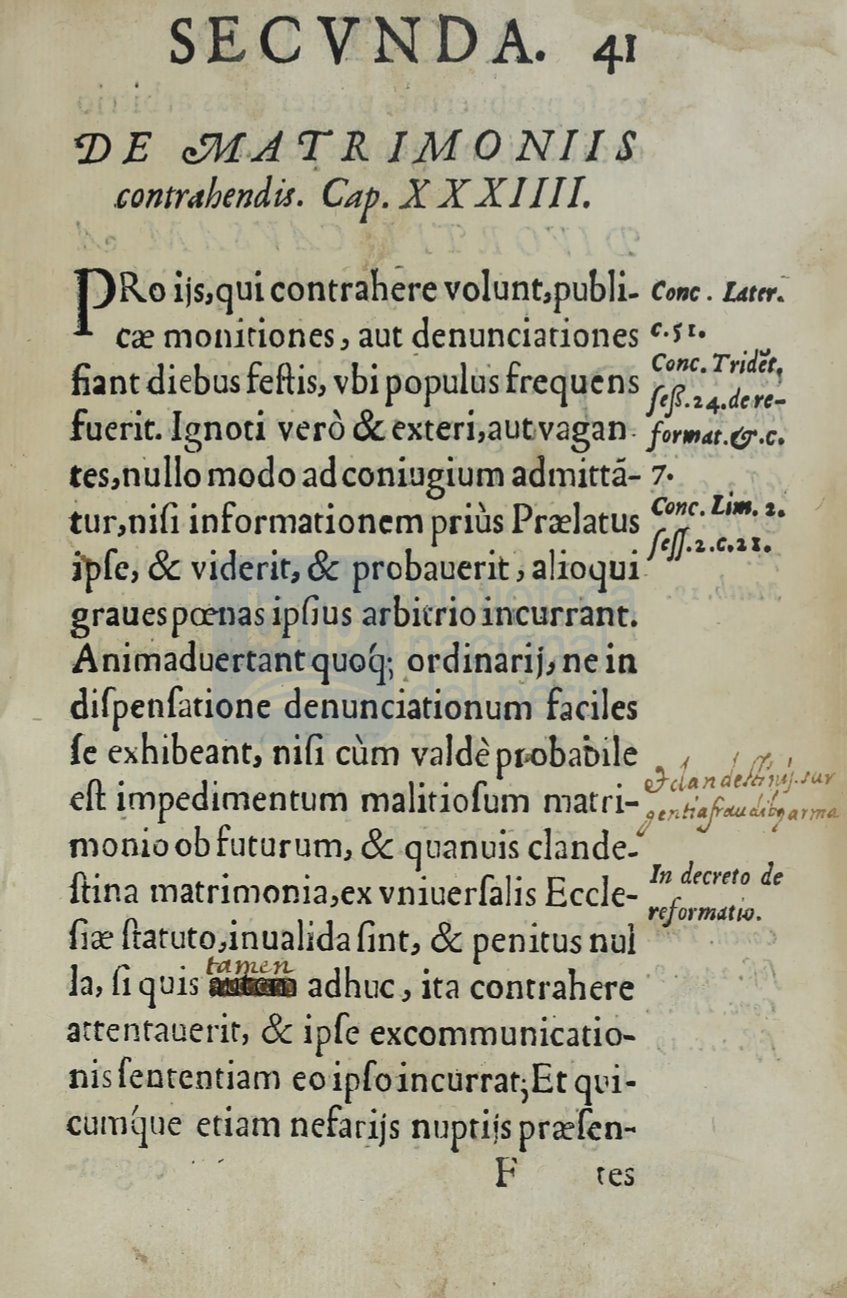 SECVNDA. 41
DE MATRIMONIIS
contrahendis. Cap. XXXIIII.
PRo ijs,qui contrahere volunt,publi-
cæ monitiones, aut denunciationes
fiant diebus festis, vbi populus frequens
fuerit. Ignoti verò & exteri,aut vagan-
tes,nullo modo ad coniugium admittã-
tur,nisi informationem priùs Prælatus
ipse, & viderit, & probauerit, alioqui
graues pœnas ipsius arbitrio incurrant.
Animaduertant quoq́; ordinarij, ne in
dispensatione denunciationum faciles
se exhibeant, nisi cùm valdè probabile
est impedimentum malitiosum matri-
monio obfuturum, & quanuis clande-
stina matrimonia,ex vniuersalis Eccle-
siæ statuto,inualida sint, & penitus nul
la, si quis autem adhuc, ita contrahere
tamen
attentauerit, & ipse excommunicatio-
nis sententiam eo ipso incurrat;Et qui-
cumq́ue etiam nefarijs nuptijs præsen-
F tes
Conc. Later.
c.51.
Conc. Tridẽt,
seß.24.de re-
format.&.c.
7.
Conc. Lim. 2.
sess.2.c.21.
& clandestinis. sur
gentia fraudibq arma
In decreto de
reformatio.
biblioteca
nacional
del perú